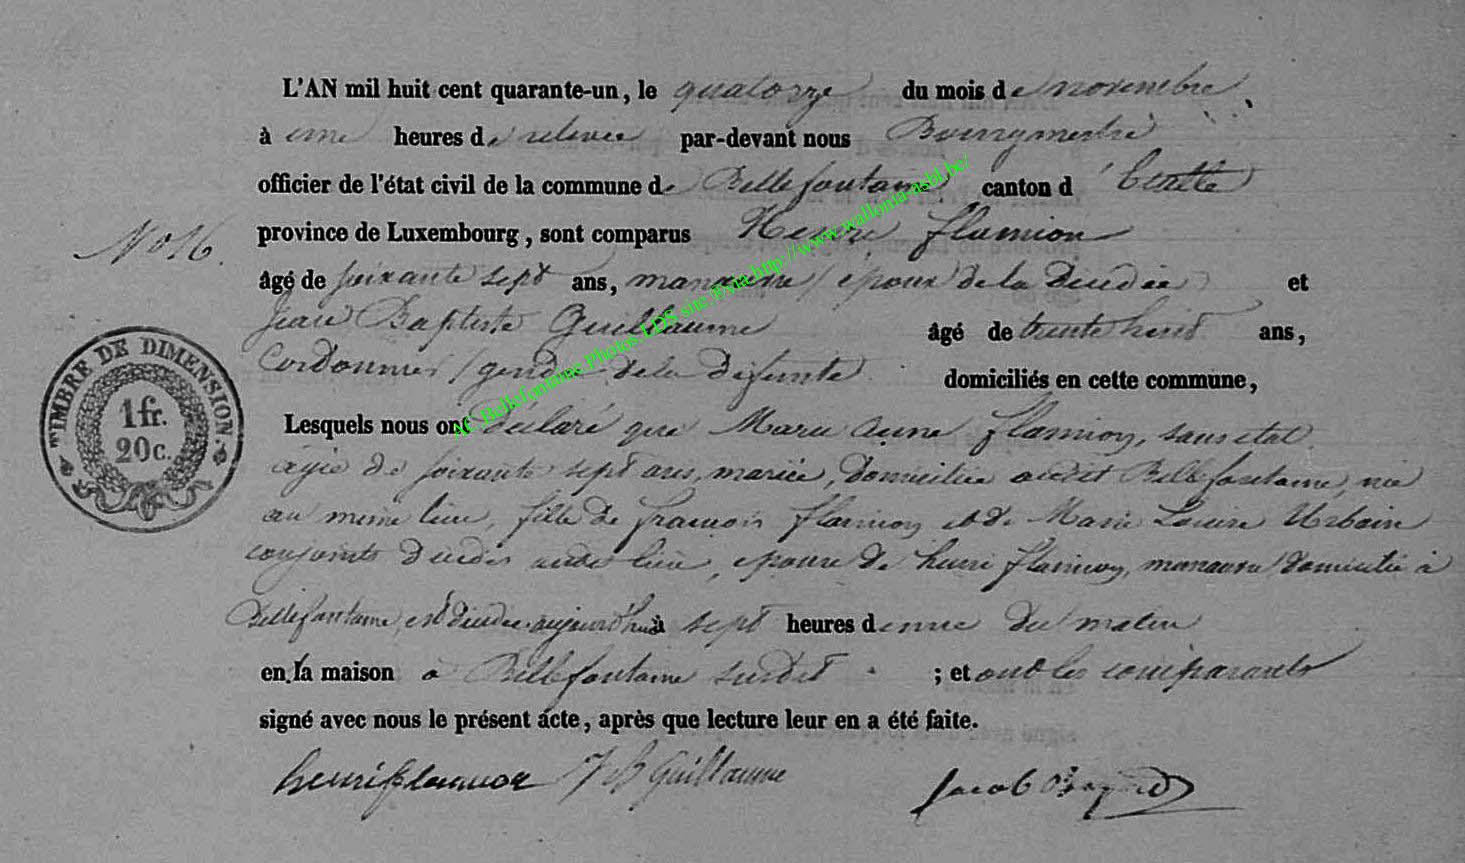 L'AN mil huit cent quarante-un, le quatorze du mois de novembre
à une heures de relevée par-devant nous Bourgmestre
officier de l'état civil de la commune de Bellefontaine canton d'Etalle
No 16.
province de Luxembourg, sont comparus Henri flamion
âgé de soixante sept ans, manœuvre / époux de la décédée et
Jean Baptiste Guillaume âgé de trente huit ans,
Cordonnier / gendre de la défunte domiciliés en cette commune,
TIMBRE DE DIMENSION.
1 fr.
20c.
Lesquels nous ont déclaré que Marie anne flamion, sans etat
agée de soixante sept ans, mariée, domiciliée audit Bellefontaine, née
au meme lieu, fille de francois flamion et de Marie Louise Urbain
conjoints décédés audit lieu, epouse de henri flamion, manœuvre domicilié à
Bellefontaine, est décédée aujourd'hui à sept heures d du matin
en la maison à Bellefontaine susdit ; et ont les comparants
signé avec nous le présent acte, après que lecture leur en a été faite.
henri flamion J B Guillaume Jacob
AC Bellefontaine Photos LDS site via http://www.wallonia-asbl.be/